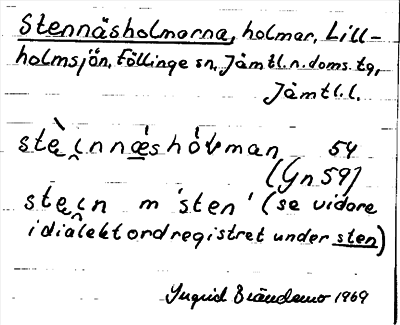 Stennäsholmarna, holmar, Lill-
holmsjön, Föllinge sn, Jämtl. n. doms. tg,
Jämtl. l.
54
(Gn 59)
m 'sten' (se vidare
i dialektordregistret under sten)
Ingrid 1969